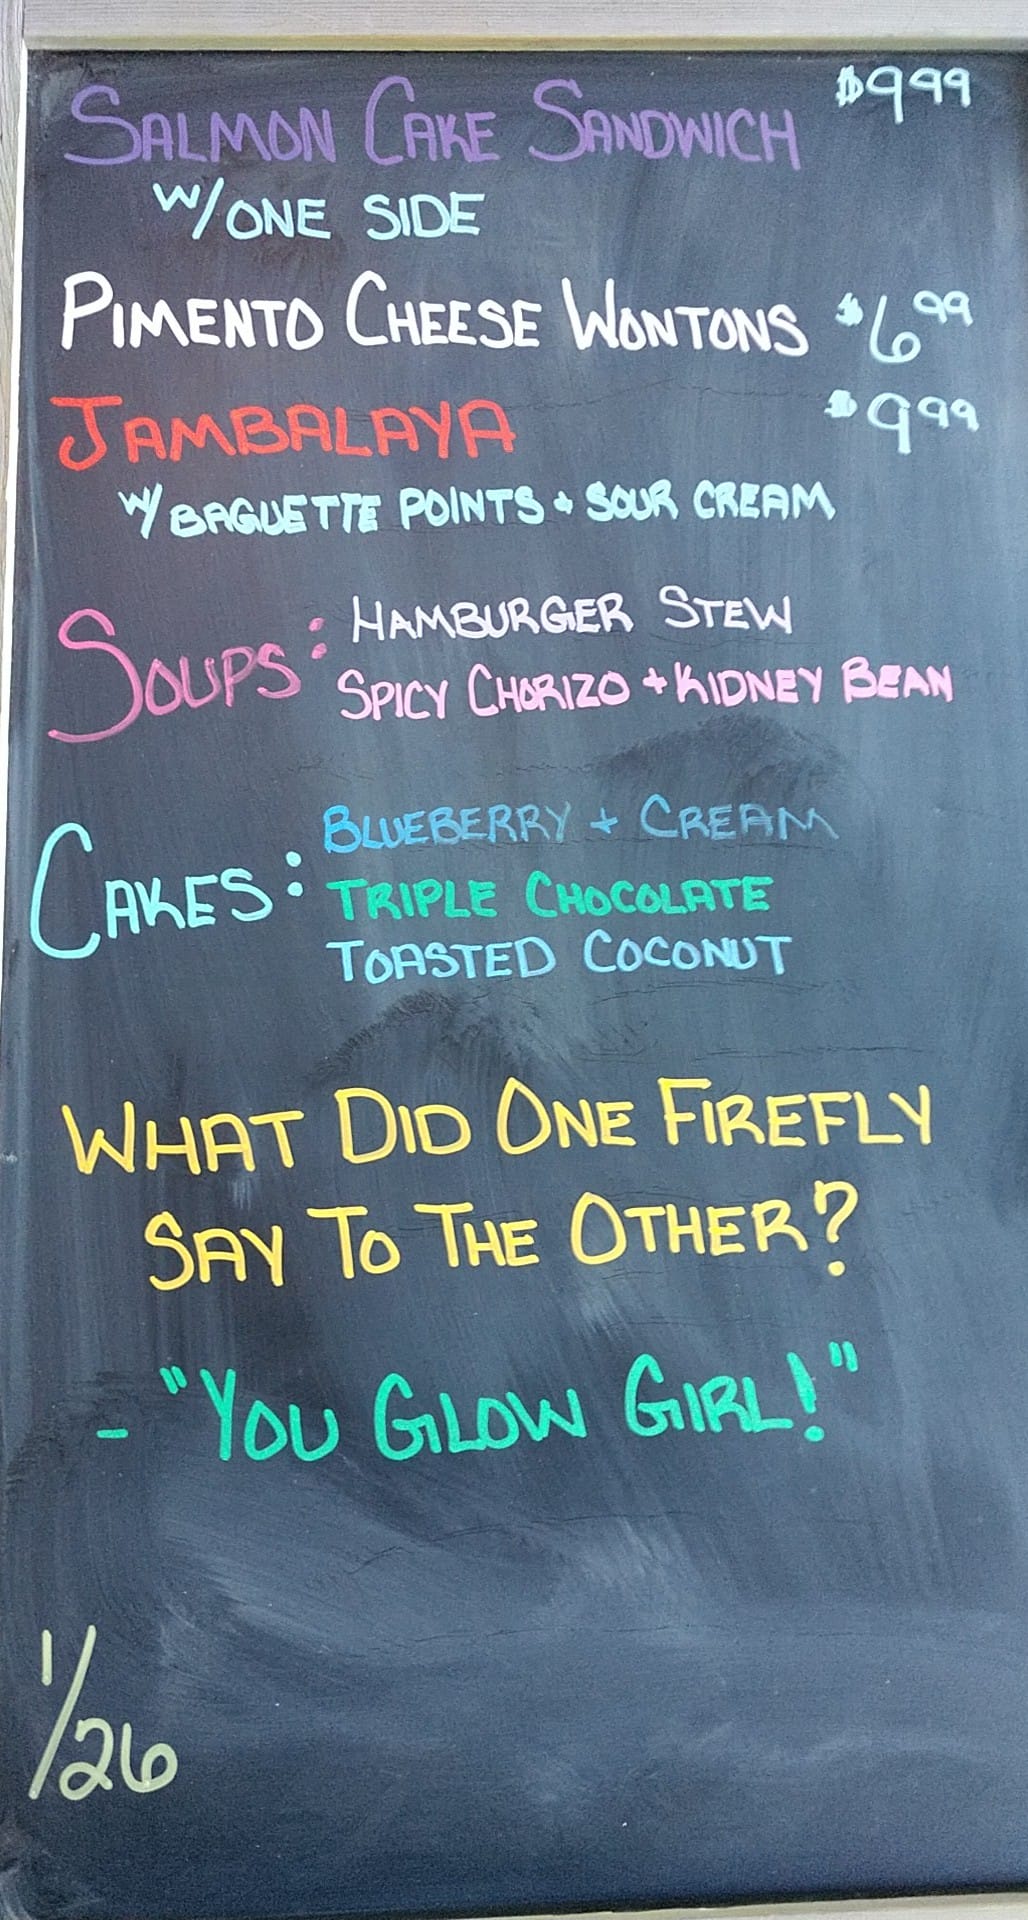 SALMON CAKE SANDWICH $9.99
W/ ONE SIDE
PIMENTO CHEESE WONTONS $6.99
JAMBALAYA $9.99
W/ BAGUETTE POINTS + SOUR CREAM
SOUPS: HAMBURGER STEW
SPICY CHORIZO + KIDNEY BEAN
CAKES: BLUEBERRY + CREAM
TRIPLE CHOCOLATE
TOASTED COCONUT
WHAT DID ONE FIREFLY
SAY TO THE OTHER?
- "YOU GLOW GIRL!"
1/26